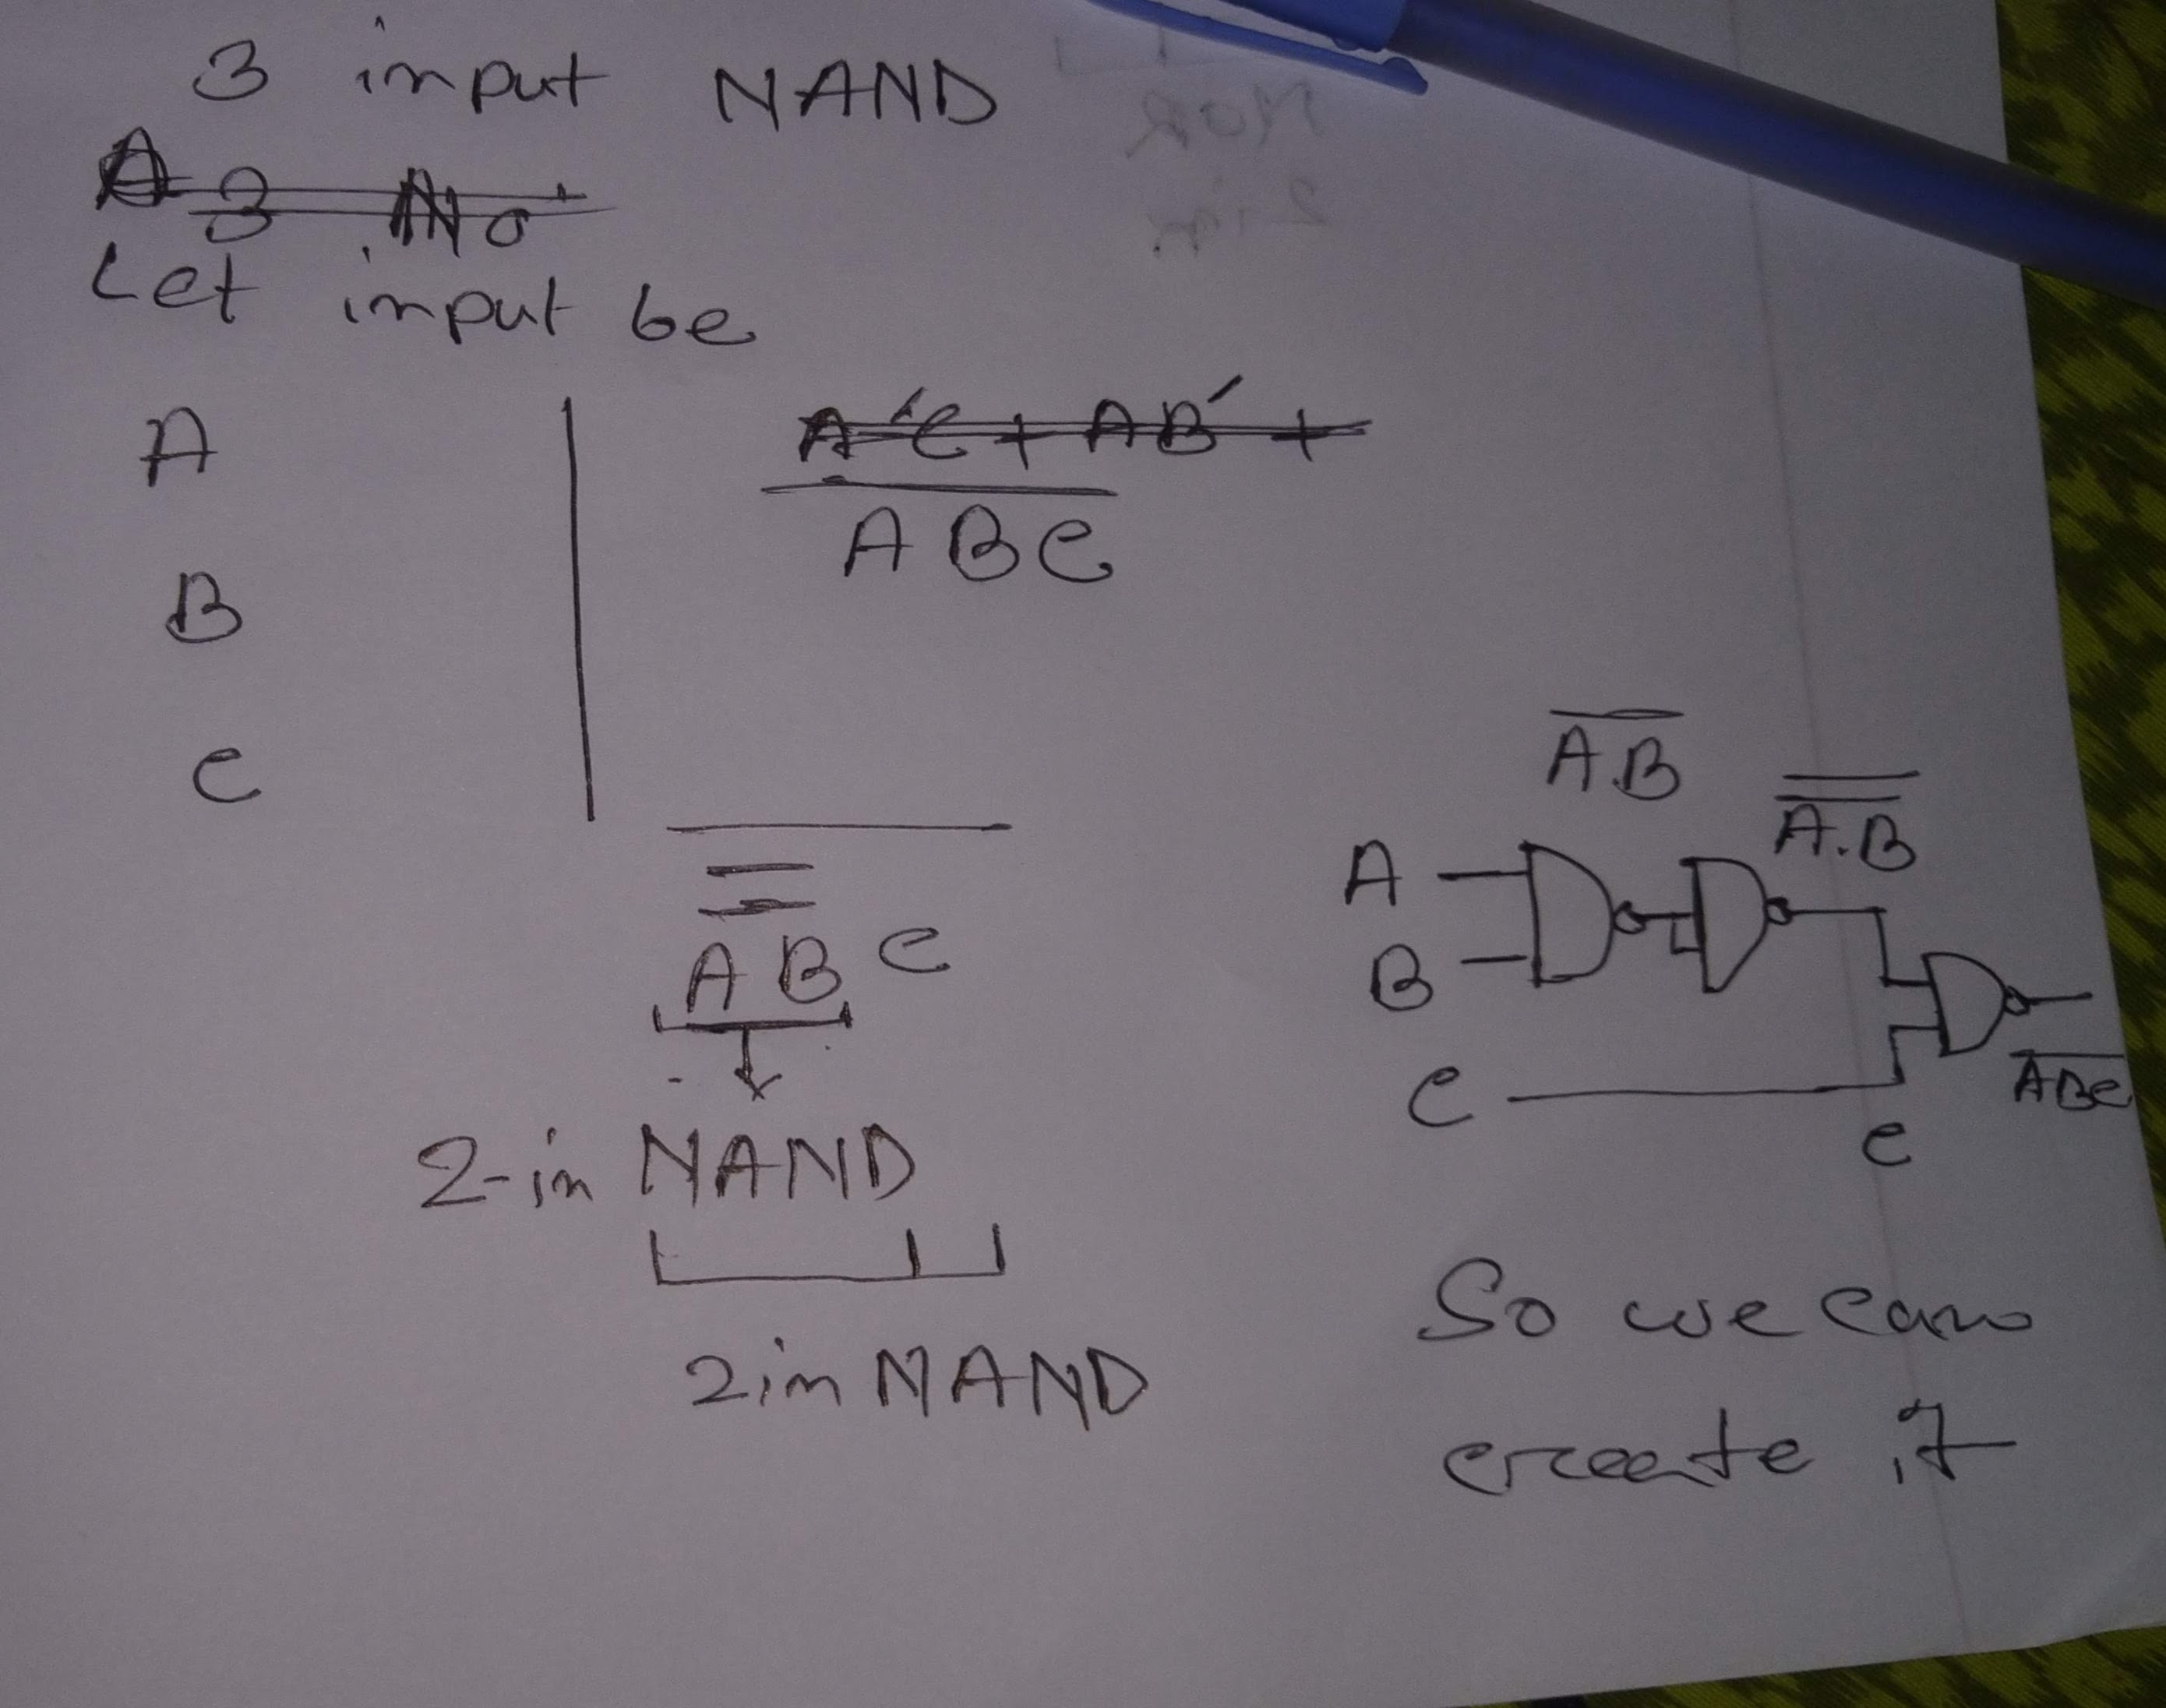 3 input NAND
Let input be
A
B
C
A'C + AB' +
A̅B̅C̅
ABC
2-in NAND
2in NAND
A.B
A.B
A
B
C
C
ABC
So we can
create it
NOR
2 in